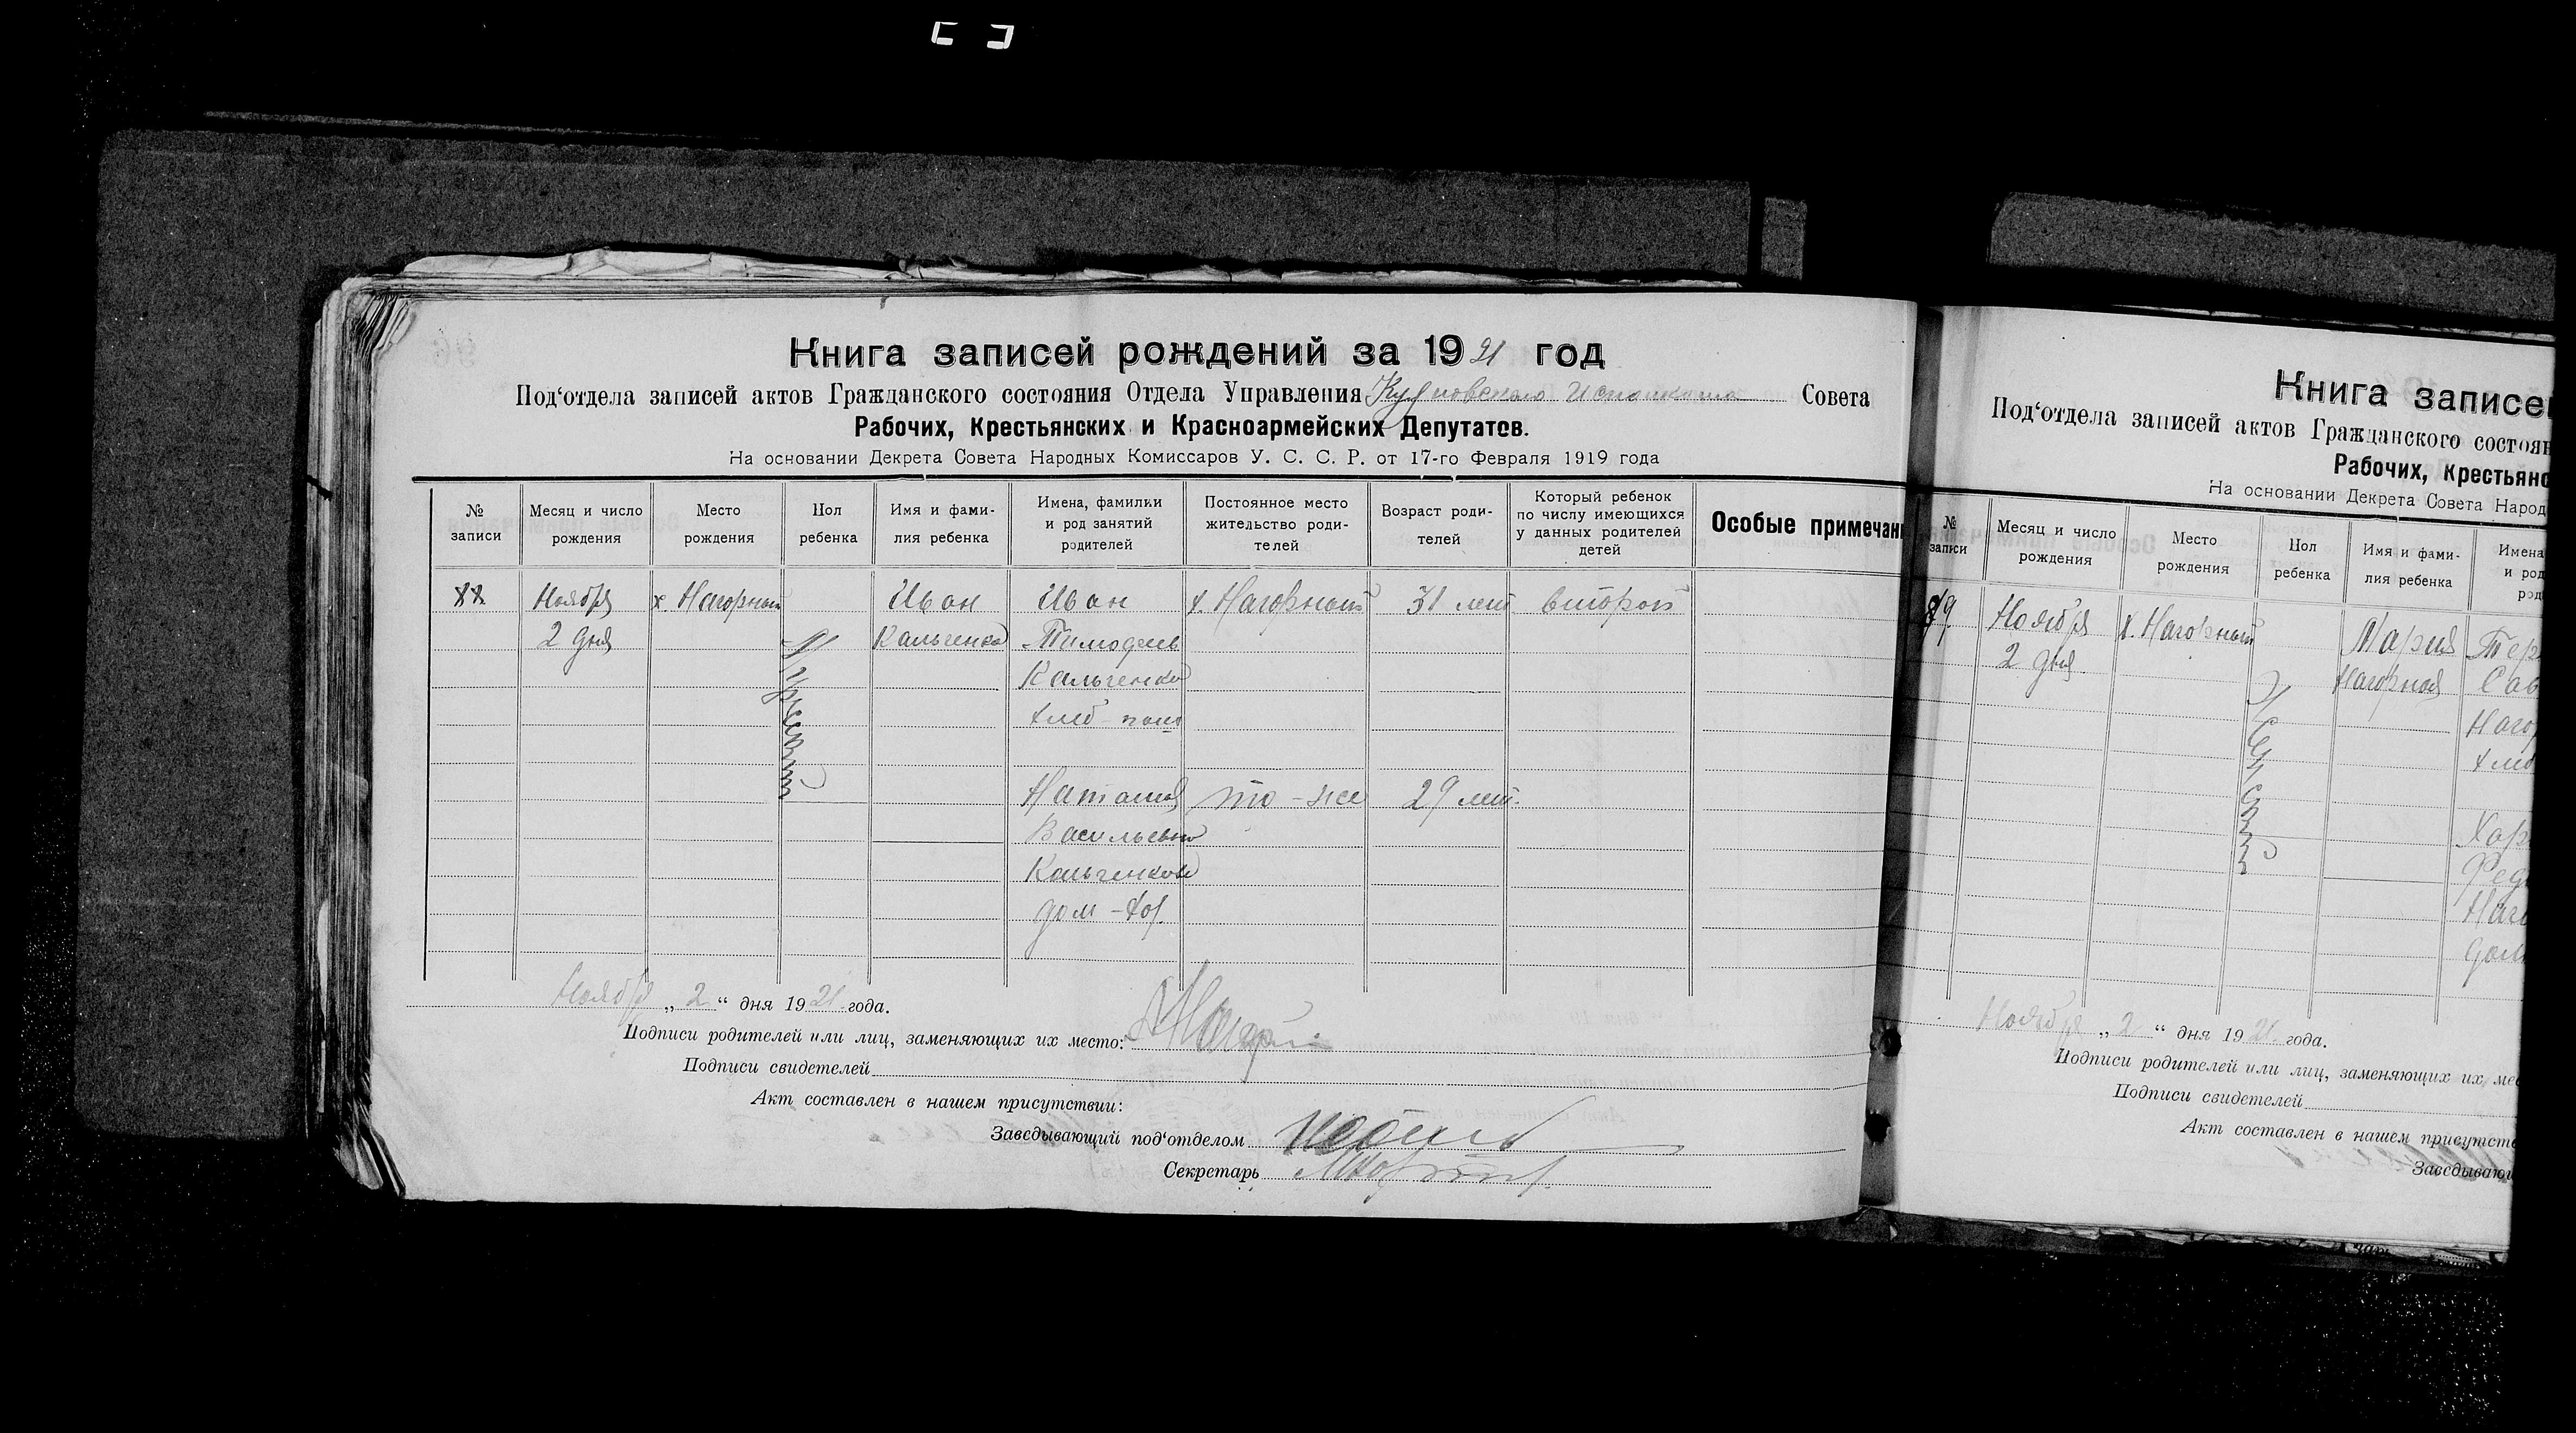 Книга записей рождений за 1921 год
Под‘отдела записей актов Гражданского состояния Отдела Управления Исполкома Совета
Рабочих, Крестьянских и Красноармейских Депутатов.
На основании Декрета Совета Народных Комиссаров У. С. С. Р. от 17-го Февраля 1919 года
№ записи
Месяц и число рождения
Место рождения
Пол ребенка
Имя и фамилия ребенка
Имена, фамилии и род занятий родителей
Постоянное место жительство родителей
Возраст родителей
Который ребенок по числу имеющихся у данных родителей детей
Особые примечан
88 Ноября х. Нагорный Иван Иван х. Нагорный 31 лет второй
2 дня Кальченко Тимофеев
Мужеский
Кальченко
хлеб-паш
Наталия то-же 29 лет.
Васильевна
Кальченкова
дом-хоз.
Ноября „2“ дня 1921 года.
Подписи родителей или лиц, заменяющих их место:
Подписи свидетелей
Акт составлен в нашем присутствии:
Заведывающий под‘отделом
Секретарь
Книга записей
Под‘отдела записей актов Гражданского состоян
Рабочих, Крестьянс
На основании Декрета Совета Народ
№ записи
Месяц и число рождения
Место рождения
Пол ребенка
Имя и фамилия ребенка
Имена
и род
род
89 Ноября х. Нагорный Мария
2 дня Нагорная Сав
Женский
Наго
хлеб
Хар
Фед
Наго
дом
Ноября „2“ дня 1921 года.
Подписи родителей или лиц, заменяющих их мес
Подписи свидетелей
Акт составлен в нашем присутств
Заведываю